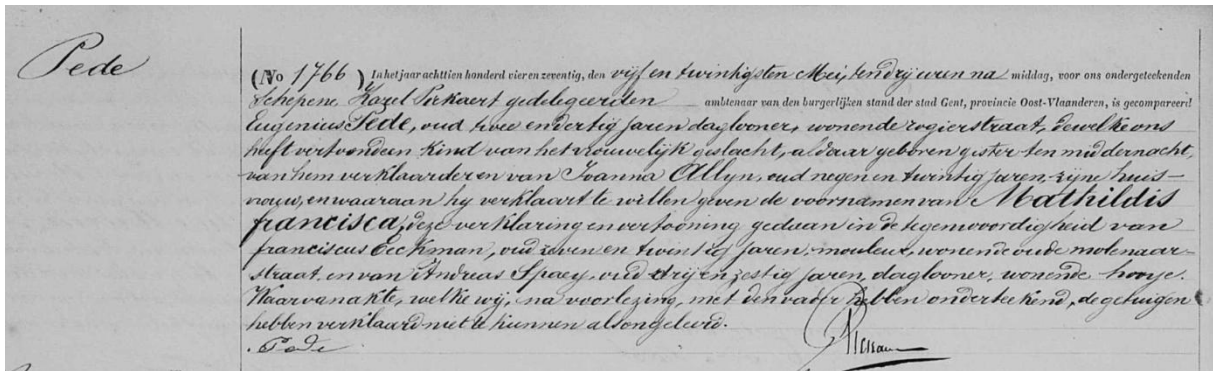 Pede
(No 1766) In het jaar achttien honderd vier en zeventig, den vijf en twintigsten Mei, ten drij uren na middag, voor ons ondergeteekenden
Schepene Karel gedelegeerden ambtenaar van den burgerlijken stand der stad Gent, provincie Oost-Vlaanderen, is gecompareerd
Eugenius Pede, oud twee en dertig jaren daglooner, wonende rogierstraat, dewelke ons
heeft vertoond een Kind van het vrouwelijk geslacht, aldaar geboren gister ten middernacht,
van hem verklaarder en van Joanna Allyn, oud negen en twintig jaren, zijne huis-
vrouw, en waaraan hy verklaart te willen geven de voornamen van Mathildis
francisca; deze verklaring en vertooning gedaan in de tegenwoordigheid van
franciscus Eeckman, oud zeven en twintig jaren, mouleur, wonende oude molenaar-
straat, en van Andreas Spaey, oud drij en zestig jaren, daglooner, wonende hooje.
Waarvan akte, welke wij, na voorlezing, met den vader hebben onderteekend, de getuigen
hebben verklaard niet te kunnen als ongeleerd.
Pede